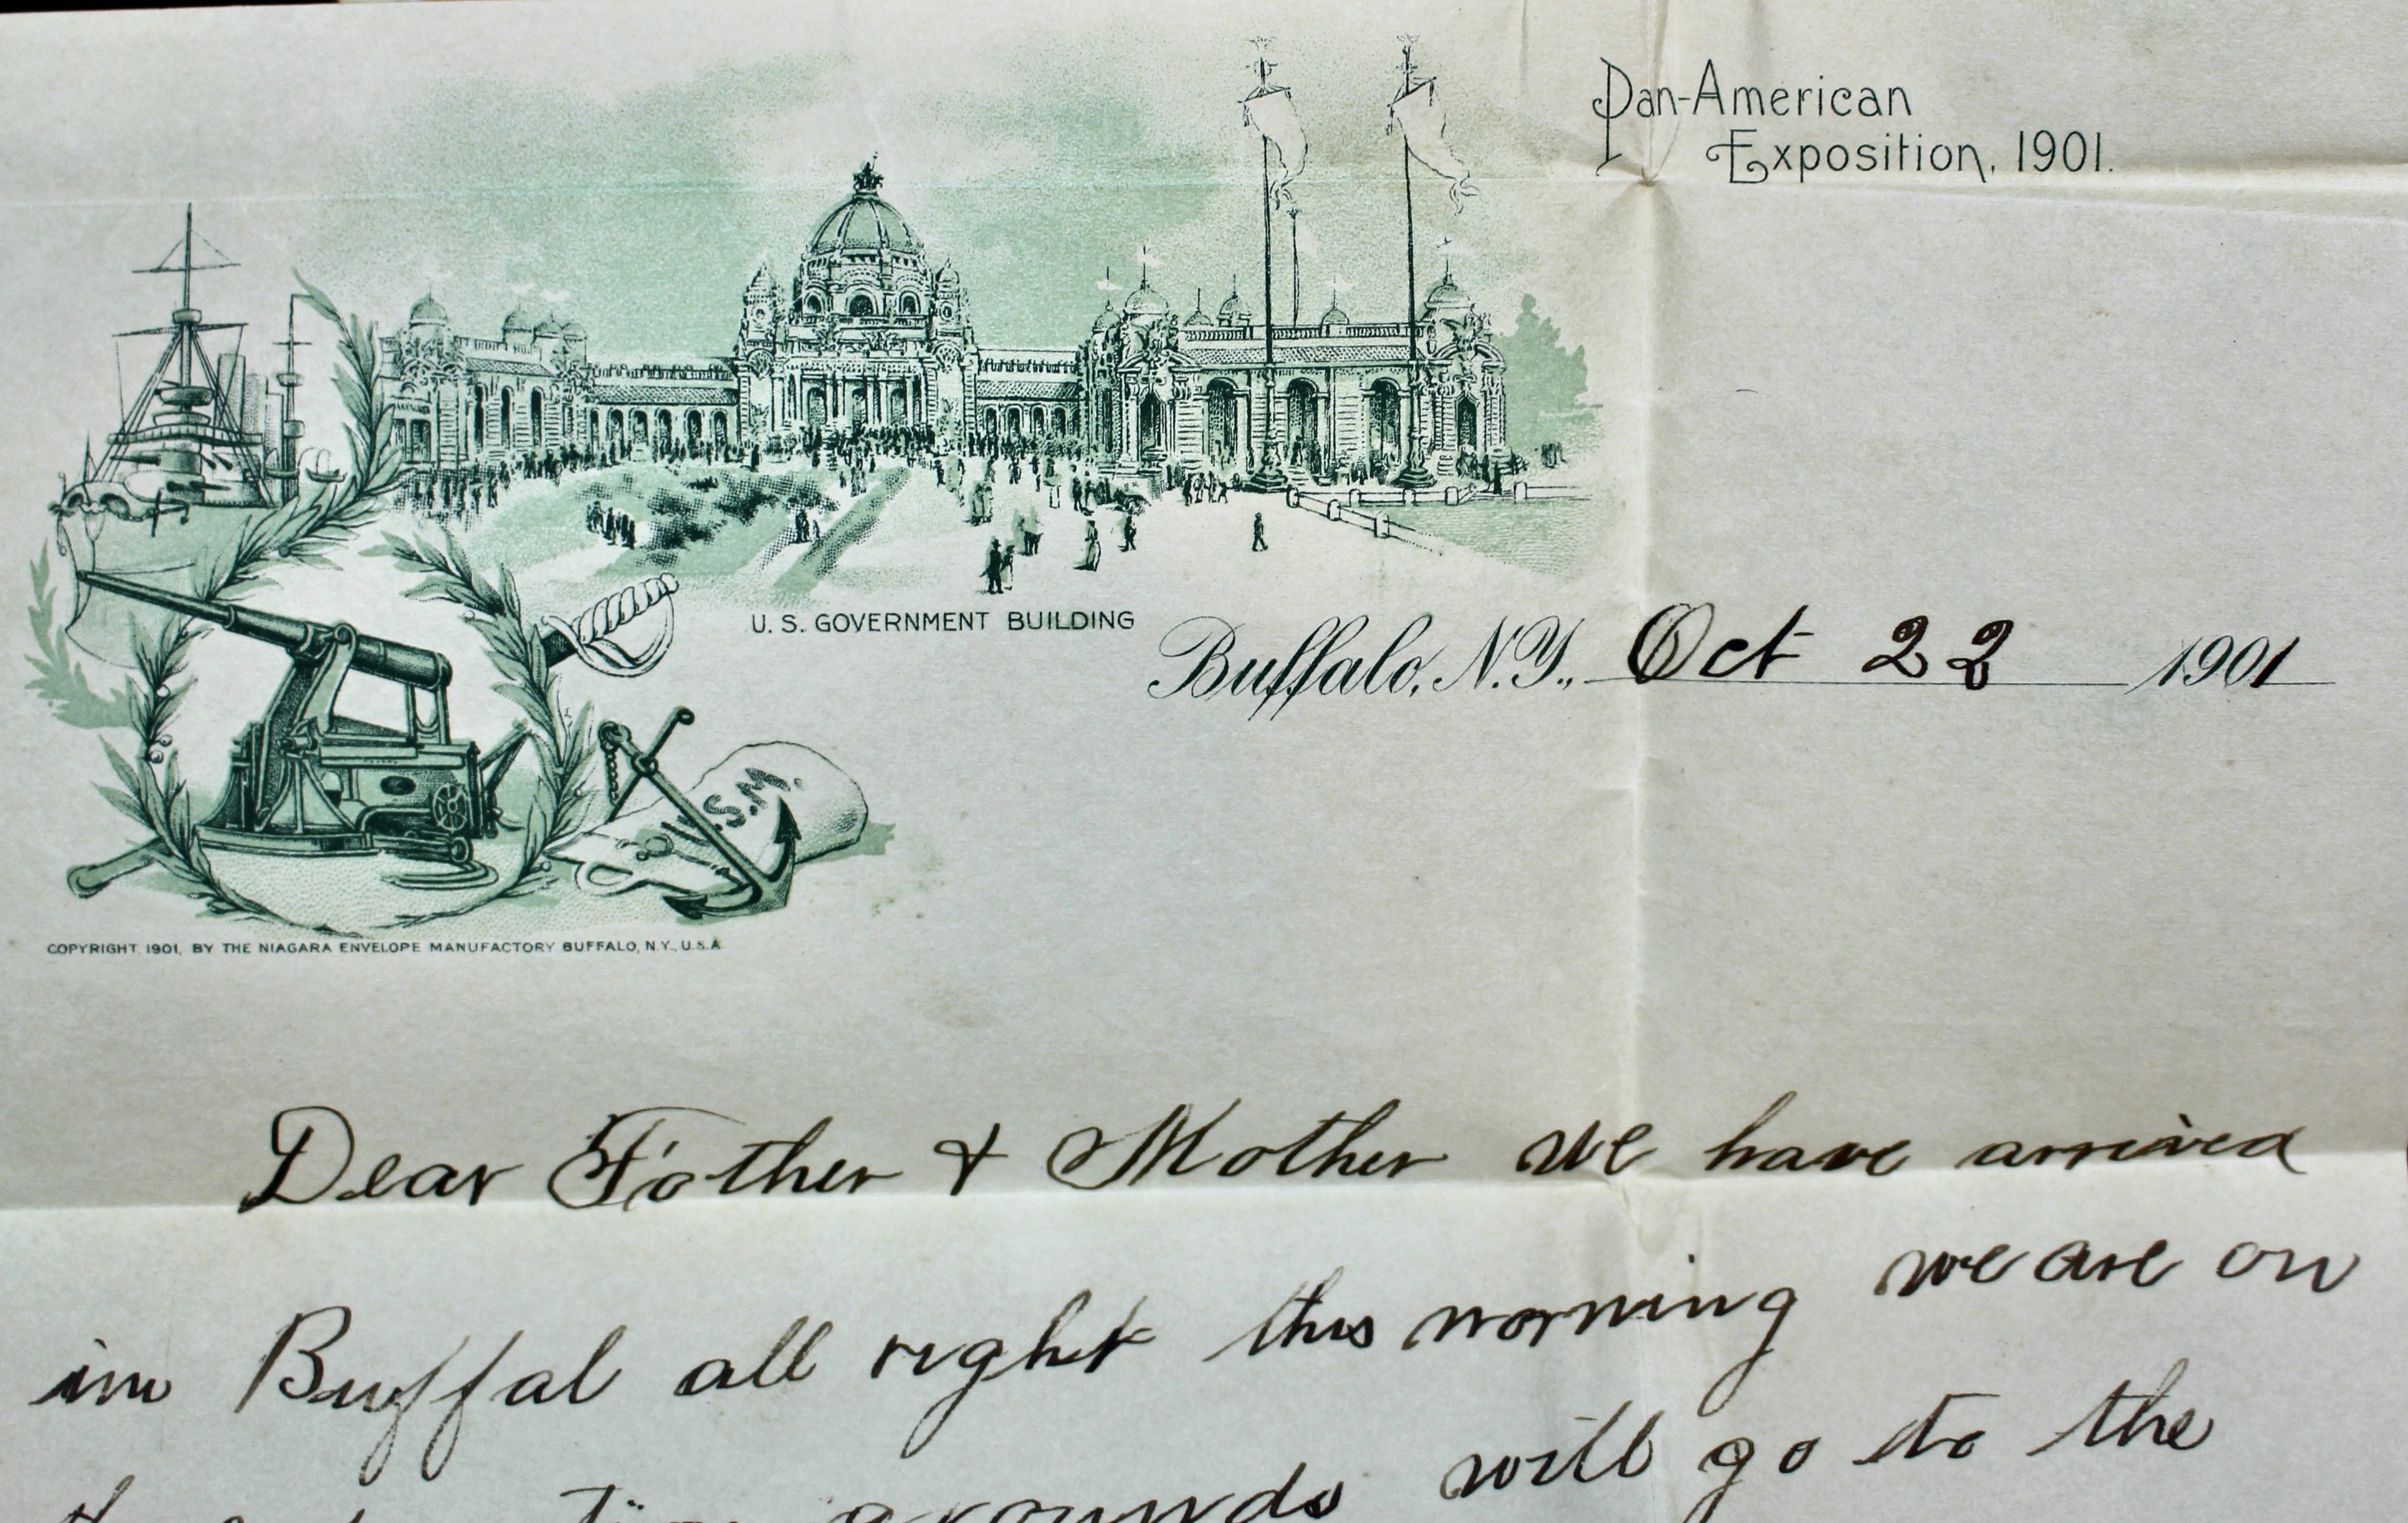 Pan-American
Exposition, 1901.
U. S. GOVERNMENT BUILDING
Buffalo, N.Y., Oct 22 1901
.S.M.
COPYRIGHT, 1901, BY THE NIAGARA ENVELOPE MANUFACTORY BUFFALO, N.Y., U.S.A
Dear Father & Mother we have arrived
in Buffal all right this morning we are on
grounds will go to the